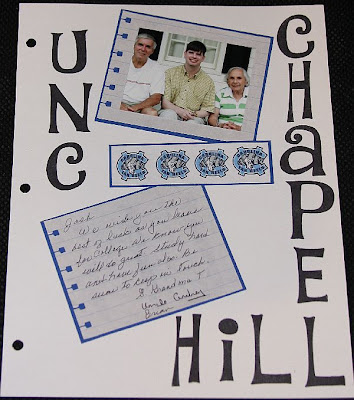 UNC
CHAPEL
HILL
Josh
We wish you the
best of luck as you leave
for college. We know you
will do great. Study hard
and have fun also. Be
sure to keep in touch.
G Grandma T
Uncle
Brian